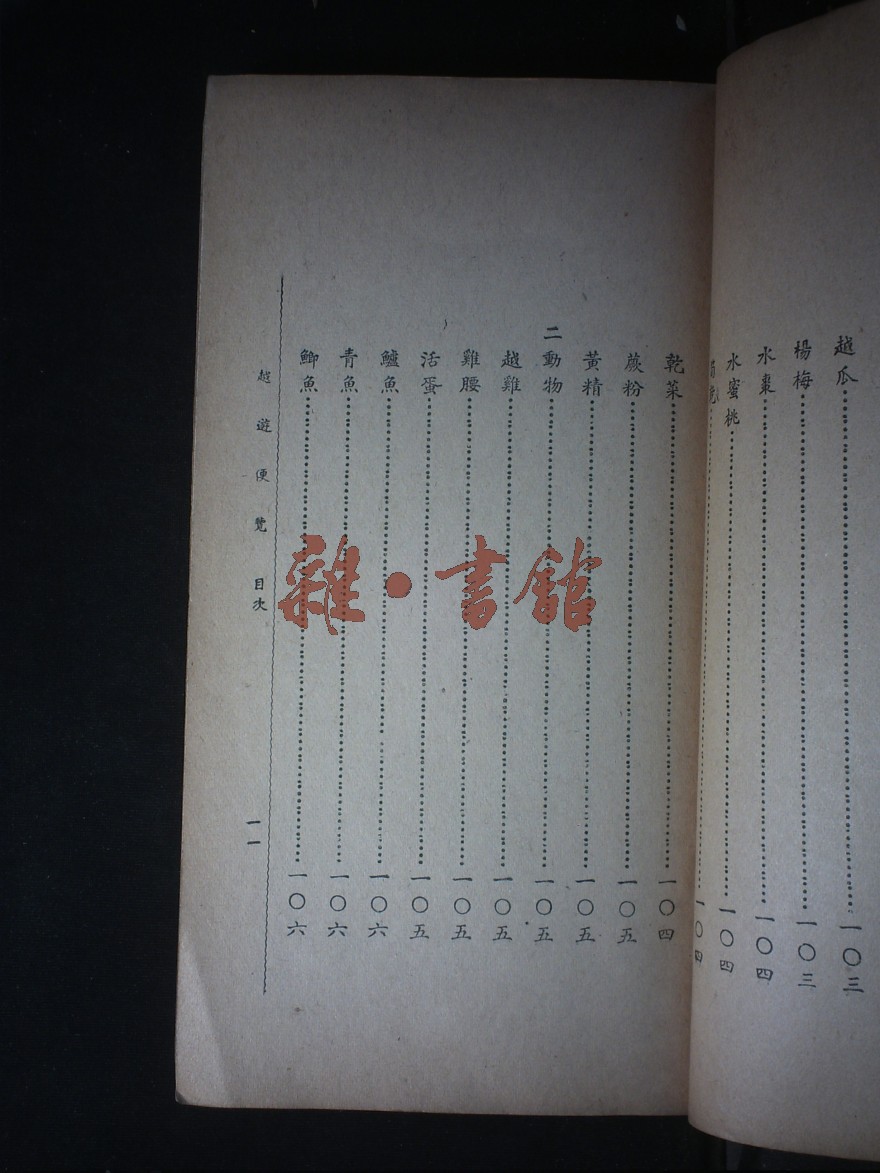 越瓜……一〇三
楊梅……一〇三
水棗……一〇四
水蜜桃……一〇四
一〇四
乾菜……一〇四
蕨粉……一〇五
黃精……一〇五
二 動物……一〇五
越雞……一〇五
雞腰……一〇五
活蛋……一〇五
鱸魚……一〇六
青魚……一〇六
鯽魚……一〇六
越遊便覽 目次 一一
雜·書館